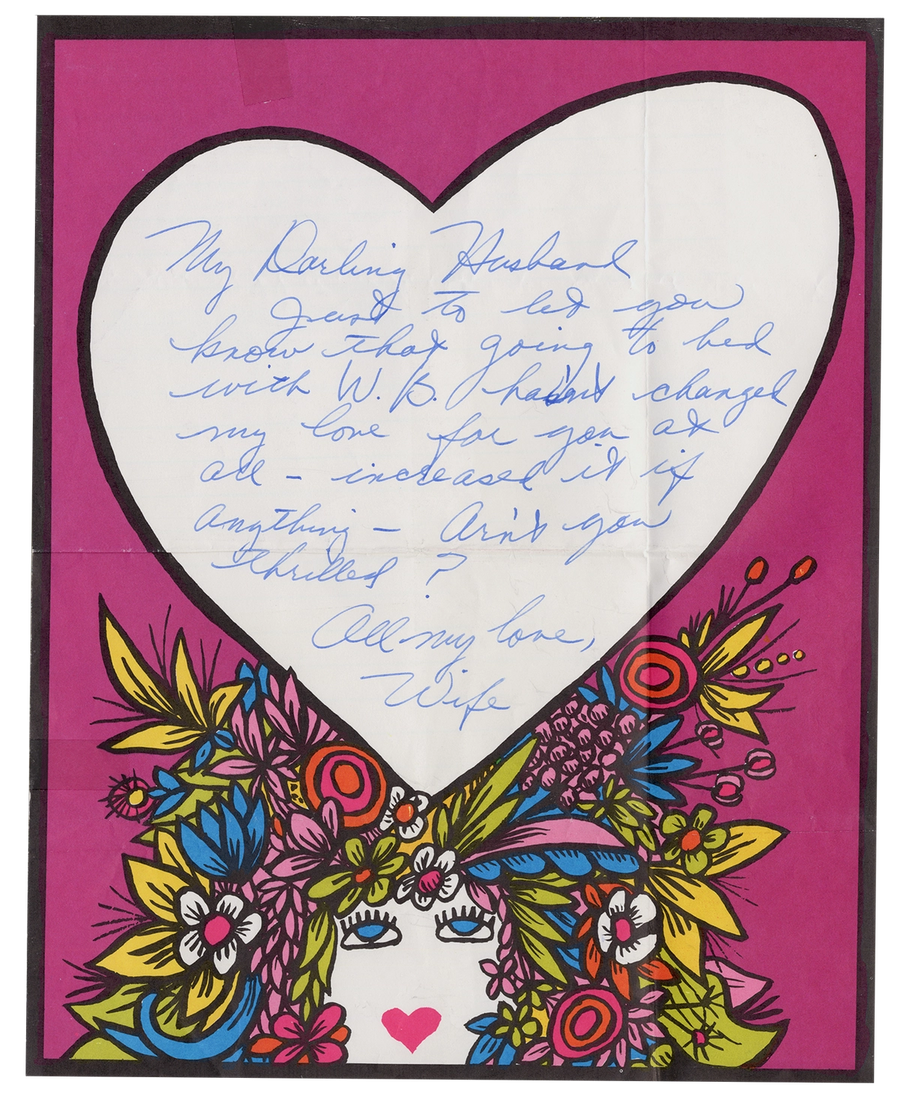 My Darling Husband
Just to let you
know that going to bed
with W. B. hasn't changed
my love for you at
all – increased it if
anything – Arn't you
thrilled ?
All my love,
Wife